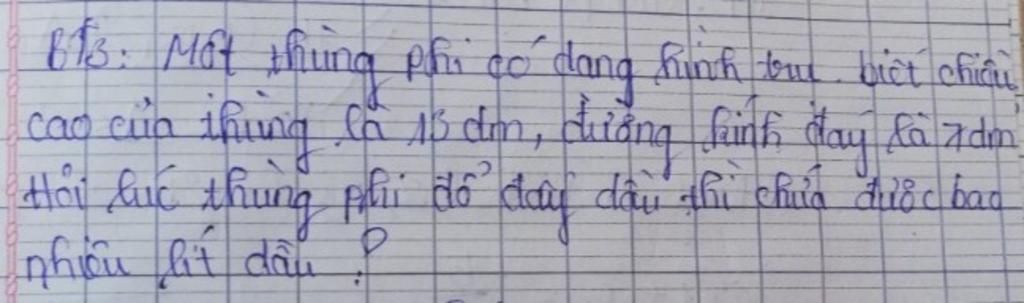 BT3: Một thùng phi có dạng hình trụ. biết chiều
cao của thùng là 13 dm, đường kính đáy là 7dm
Hỏi lúc thùng phi đổ đầy dầu thì chứa được bao
nhiêu lít dầu ?